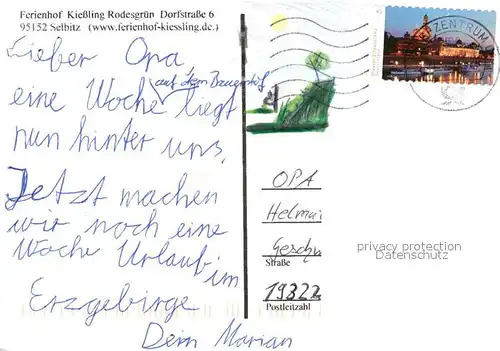 Ferienhof Kießling Rodesgrün Dorfstraße 6
95152 Selbitz (www.ferienhof-kiessling.de.)
Lieber Opa,
eine Woche auf dem Bauernhof liegt
nun hinter uns.
Jetzt machen
wir noch eine
Woche Urlaub im
Erzgebirge
Dein Marian
ZENTRUM
OPA
Helmu
Gesch
Straße
19322
Postleitzahl
privacy protection
Datenschutz